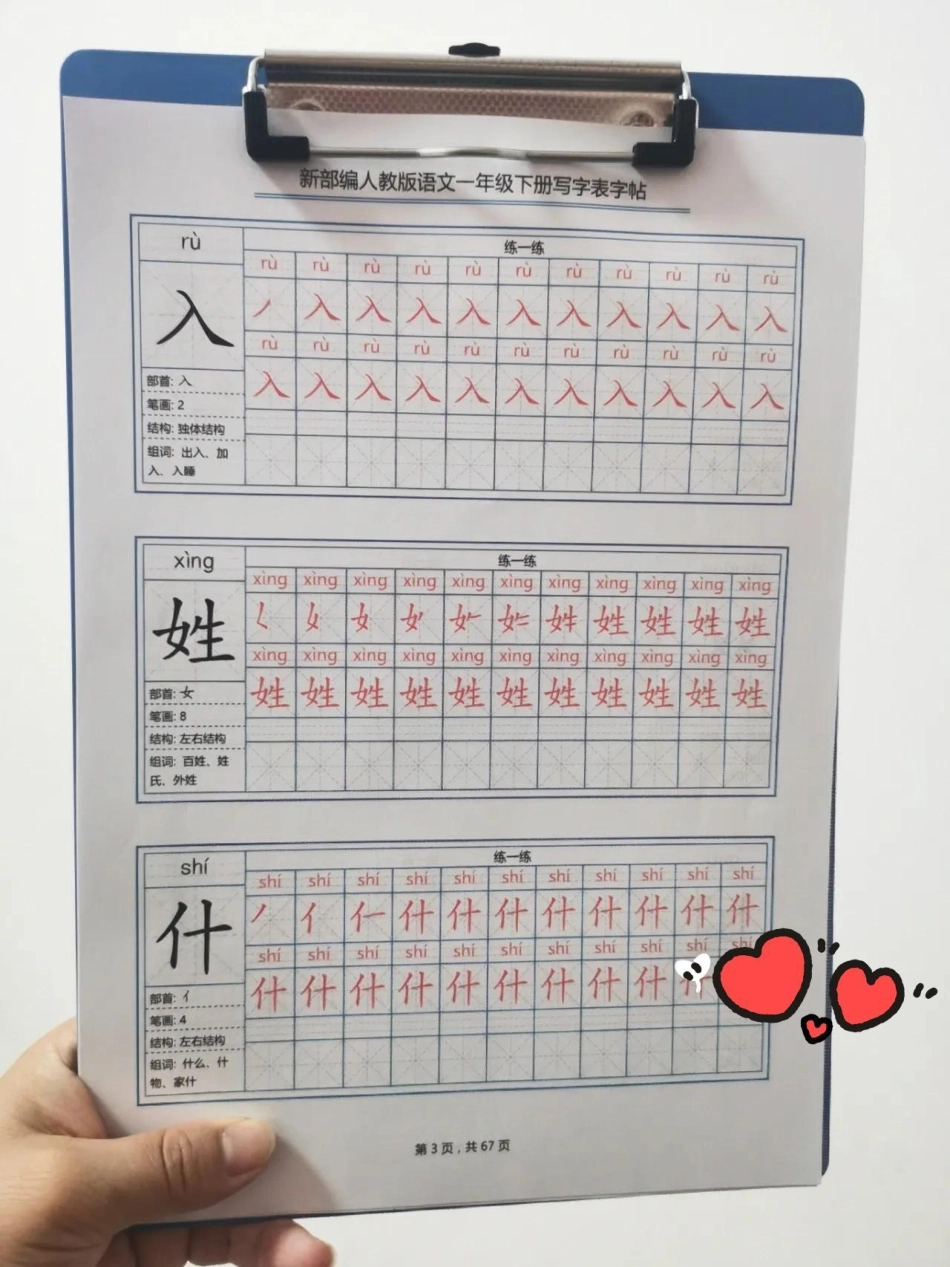 新部编人教版语文一年级下册写字表字帖
rù
练一练
rù rù rù rù rù rù rù rù rù rù rù
入
丿 入 入 入 入 入 入 入 入 入 入
rù rù rù rù rù rù rù rù rù rù rù
入 入 入 入 入 入 入 入 入 入 入
部首: 入
笔画: 2
结构: 独体结构
组词: 出入、加
入、入睡
xìng
练一练
xìng xìng xìng xìng xìng xìng xìng xìng xìng xìng xìng
姓
姓 姓 姓 姓
xìng xìng xìng xìng xìng xìng xìng xìng xìng xìng xìng
姓 姓 姓 姓 姓 姓 姓 姓 姓 姓 姓
部首: 女
笔画: 8
结构: 左右结构
组词: 百姓、姓
氏、外姓
shí
练一练
shí shí shí shí shí shí shí shí shí shí shí
什
丿 亻 什 什 什 什 什 什 什 什
shí shí shí shí shí shí shí shí shí shí shí
什 什 什 什 什 什 什 什 什
部首: 亻
笔画: 4
结构: 左右结构
组词: 什么、什
物、家什
第 3 页 , 共 67 页